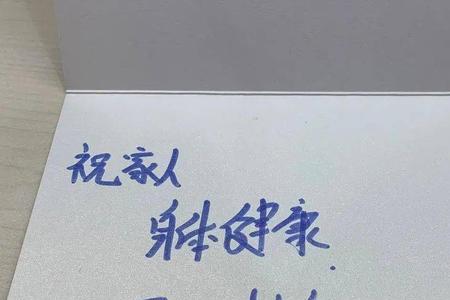 祝家人
身体健康.